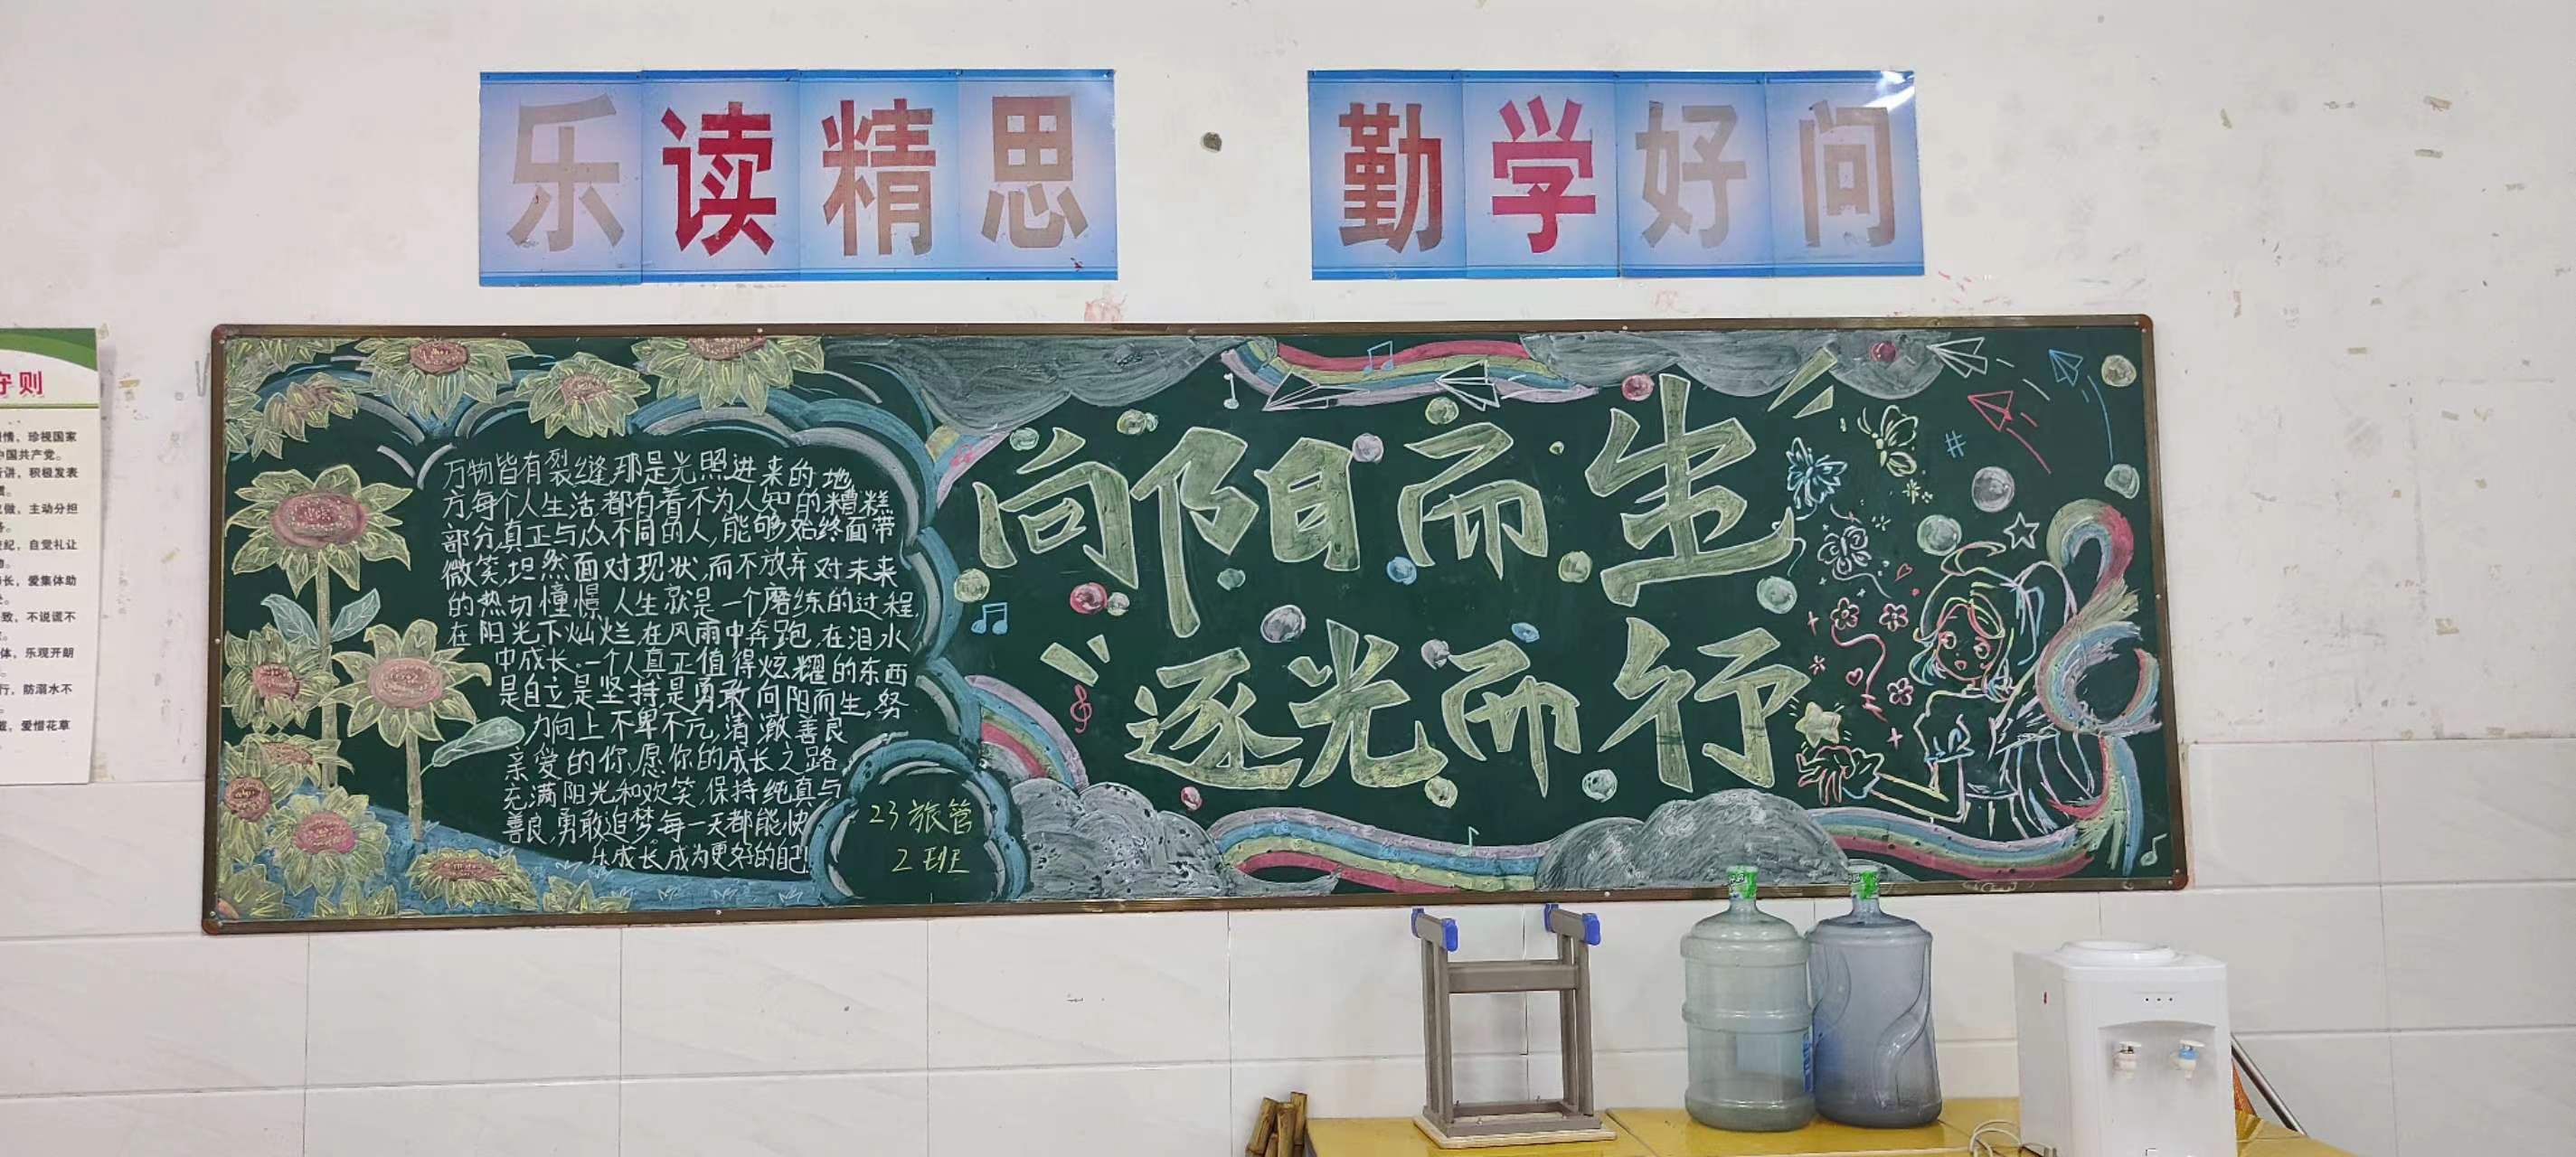 乐读精思 勤学好问
守则
情，珍视国家
中国共产党。
讲，积极发表
做，主动分担
纪，自觉礼让
长，爱集体助
致，不说谎不
体，乐观开朗
行，防溺水不
，爱惜花草
万物皆有裂缝,那是光照进来的地
方,每个人生活,都有着不为人知的糟糕
部分,真正与众不同的人,能够始终面带
微笑,坦然面对现状,而不放弃对未来
的热切憧憬,人生就是一个磨练的过程,
在阳光下灿烂,在风雨中奔跑,在泪水
中成长。一个人真正值得炫耀的东西
是自立,是坚持,是勇敢向阳而生,努
力向上,不卑不亢,清澈善良
亲爱的你,愿你的成长之路,
充满阳光和欢笑,保持纯真与
善良,勇敢追梦。每一天都能快
乐成长,成为更好的自己!
23旅管
2班
向阳而生
逐光而行